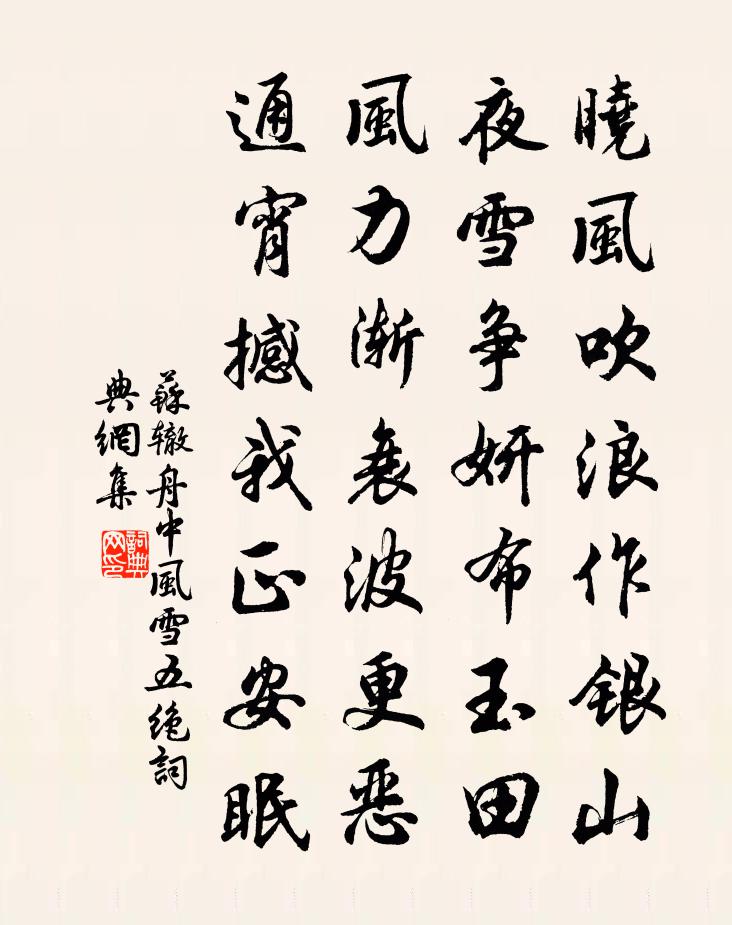 曉風吹浪作銀山
夜雪争妍布玉田
風力漸衰波更惡
通宵撼我正安眠
蘇轍舟中風雪五絶詞
典網集
詞典
网印